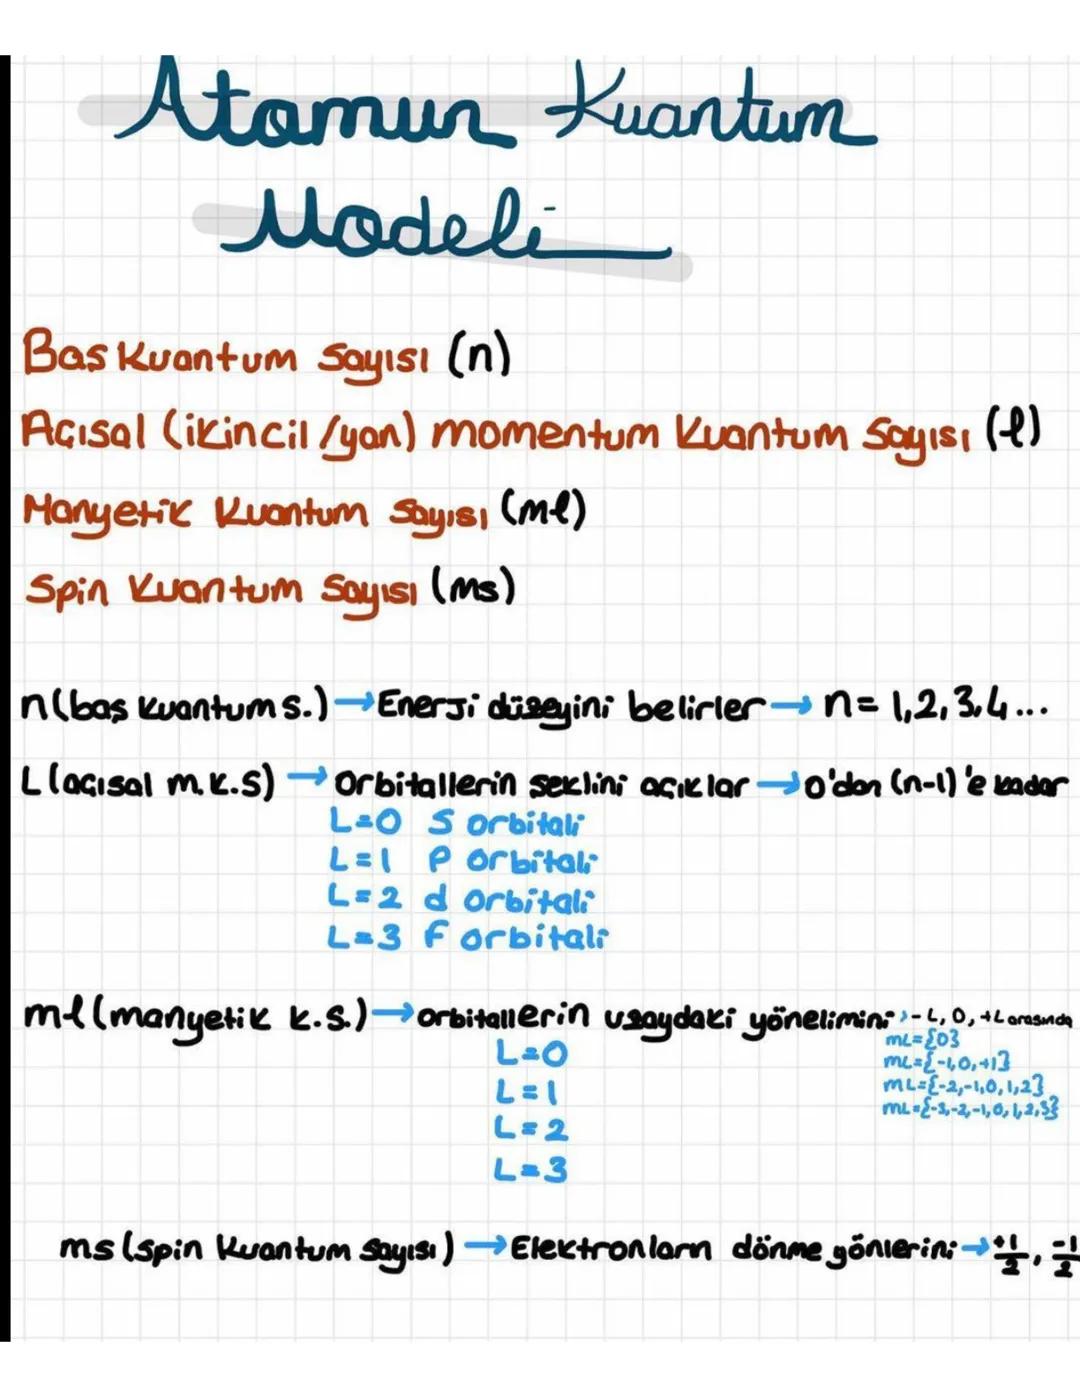 Atomun Kuantum
Modeli
Baş Kuantum Sayısı (n)
Açısal (ikincil/yan) momentum Kuantum Sayısı (l)
Manyetik Kuantum Sayısı (ml)
Spin Kuantum Sayısı (ms)
n(baş kuantum s.)→Enerji düzeyini belirler→ n= 1,2,3,4...
L(açısal m.k.s) → orbitallerin şeklini açıklar→0'dan (n-1)'e kadar
L=0 S orbitali
L=1 P orbitali
L=2 d orbitali
L=3 f orbitali
ml(manyetik k.s.)→orbitallerin uzaydaki yönelimini→-L, 0, +L arasında
L=0 mL={0}
L=1 mL={-1,0,+1}
L=2 mL={-2,-1,0,1,2}
L=3 mL={-3,-2,-1,0,1,2,3}
ms(spin kuantum sayısı)→Elektronların dönme yönlerini→+1/2, -1/2